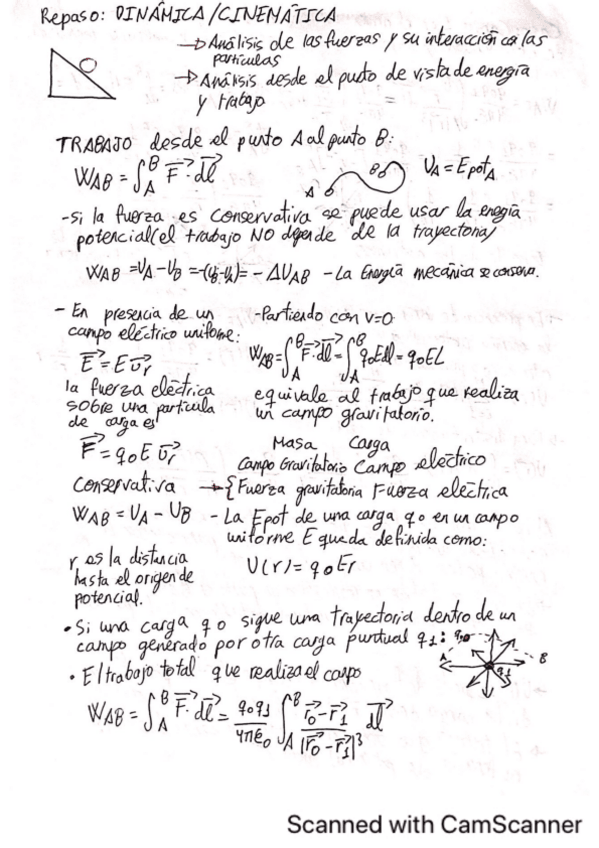 Repaso: DINÁMICA/CINEMÁTICA
→ Análisis de las fuerzas y su interacción con las
partículas
→ Análisis desde el punto de vista de energía
y trabajo
TRABAJO desde el punto A al punto B:
W_AB = ∫_A^B F⃗·dl⃗ A B U_A = Epot_A
-si la fuerza es conservativa se puede usar la energía
potencial (el trabajo NO depende de la trayectoria)
W_AB = U_A - U_B = -(U_B-U_A) = -ΔU_AB - La Energía mecánica se conserva.
- En presencia de un
campo eléctrico uniforme:
E⃗ = E u⃗r
la fuerza eléctrica
sobre una partícula
de carga es
F⃗ = q0 E u⃗r
conservativa
W_AB = U_A - U_B
r es la distancia
hasta el origen de
potencial.
-Partiendo con v=0
W_AB = ∫_A^B F⃗·dl⃗ = ∫_A^B q0Edl = q0EL
equivale al trabajo que realiza
un campo gravitatorio.
Masa Carga
Campo Gravitatorio Campo eléctrico
→ { Fuerza gravitatoria Fuerza eléctrica
- La Epot de una carga q0 en un campo
uniforme E queda definida como:
U(r) = q0 Er
• Si una carga q0 sigue una trayectoria dentro de un
campo generado por otra carga puntual q1: q0
A B
q1
• El trabajo total que realiza el campo
W_AB = ∫_A^B F⃗·dl⃗ = q0q1/4πε0 ∫_A^B (r⃗0-r⃗1)/|r⃗0-r⃗1|³ dl⃗
Scanned with CamScanner